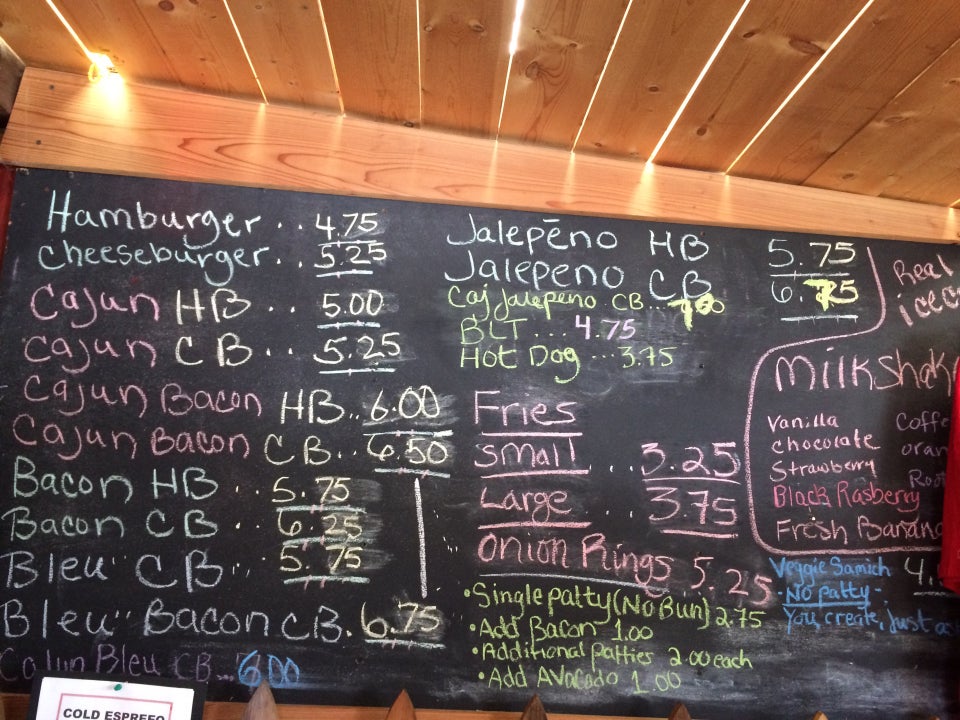 Hamburger .. 4.75
cheeseburger.. 5.25
Cajun HB .. 5.00
Cajun CB .. 5.25
Cajun Bacon HB.. 6.00
Cajun Bacon CB.. 6.50
Bacon HB .. 5.75
Bacon CB .. 6.25
Bleu CB .. 5.75
Bleu Bacon CB. 6.75
Cajun Bleu CB.. 6.00
COLD ESPREFO
Jalepēno HB 5.75
Jalepeno CB 6.75
Caj Jalepeno CB... 7.00
BLT .... 4.75
Hot Dog ... 3.75
Fries
Small ... 3.25
Large ... 3.75
Onion Rings 5.25
•Single patty (No Bun) 2.75
•Add Bacon 1.00
•Additional patties 2.00 each
•Add Avocado 1.00
Real
Milk
Vanilla
chocolate
Strawberry
Black Rasberry
Fresh
Veggie Samich 4.
-No patty-
You, create, just